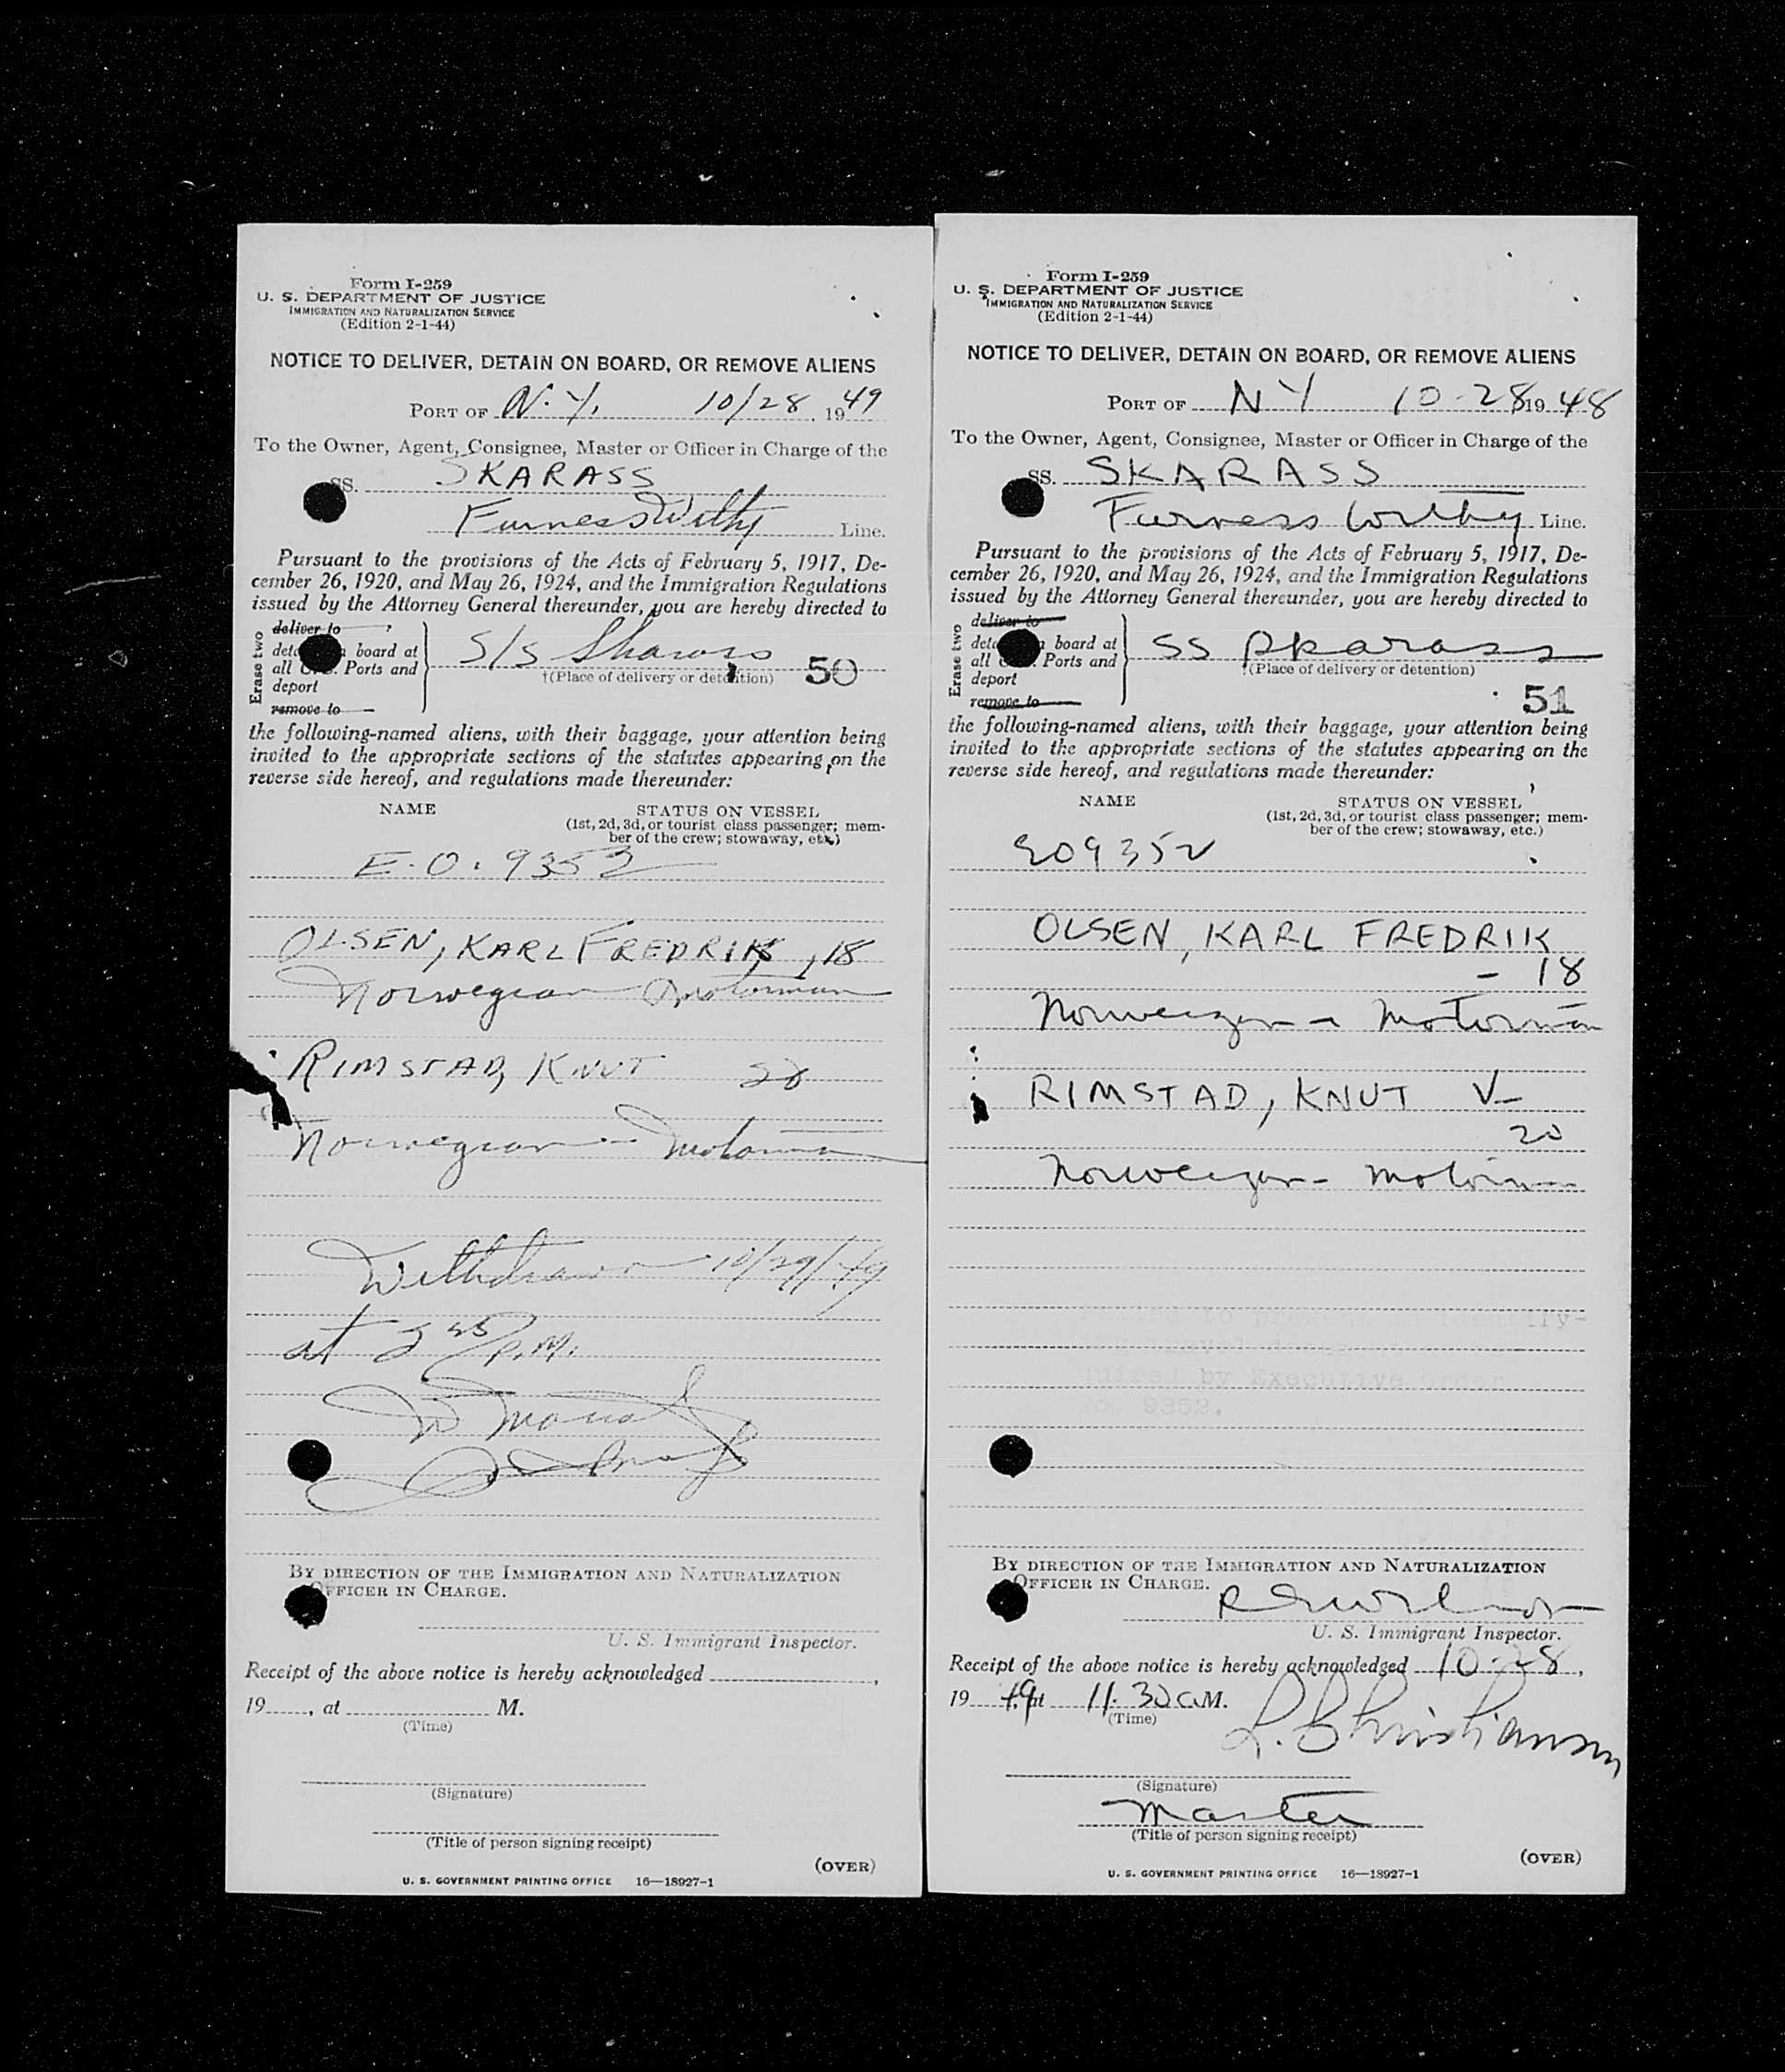 Form I-259
U. S. DEPARTMENT OF JUSTICE
IMMIGRATION AND NATURALIZATION SERVICE
(Edition 2-1-44)
NOTICE TO DELIVER, DETAIN ON BOARD, OR REMOVE ALIENS
PORT OF N. Y. 10/28, 1949
To the Owner, Agent, Consignee, Master or Officer in Charge of the
SS. SKARASS
Furness Withy Line.
Pursuant to the provisions of the Acts of February 5, 1917, De-
cember 26, 1920, and May 26, 1924, and the Immigration Regulations
issued by the Attorney General thereunder, you are hereby directed to
Erase two
deliver to
board at
all Ports and
deport
remove to
S/S
†(Place of delivery or detention) 50
the following-named aliens, with their baggage, your attention being
invited to the appropriate sections of the statutes appearing on the
reverse side hereof, and regulations made thereunder:
NAME STATUS ON VESSEL
(1st, 2d, 3d, or tourist class passenger; mem-
ber of the crew; stowaway, etc.)
E. O. 9352
OLSEN, KARL FREDRIK, 18
Norwegian Motorman
RIMSTAD, KNUT 20
Norwegian - Motorman
Withdrawn 10/29/49
at P.M.
BY DIRECTION OF THE IMMIGRATION AND NATURALIZATION
OFFICER IN CHARGE.
U. S. Immigrant Inspector.
Receipt of the above notice is hereby acknowledged ,
19 , at M.
(Time)
(Signature)
(Title of person signing receipt)
(OVER)
U. S. GOVERNMENT PRINTING OFFICE 16—18927-1
Form I-259
U. S. DEPARTMENT OF JUSTICE
IMMIGRATION AND NATURALIZATION SERVICE
(Edition 2-1-44)
NOTICE TO DELIVER, DETAIN ON BOARD, OR REMOVE ALIENS
PORT OF NY 10-28 1948
To the Owner, Agent, Consignee, Master or Officer in Charge of the
SS. SKARASS
Furness Withy Line.
Pursuant to the provisions of the Acts of February 5, 1917, De-
cember 26, 1920, and May 26, 1924, and the Immigration Regulations
issued by the Attorney General thereunder, you are hereby directed to
Erase two
deliver to
board at
all Ports and
deport
remove to
SS Skarass
†(Place of delivery or detention)
51
the following-named aliens, with their baggage, your attention being
invited to the appropriate sections of the statutes appearing on the
reverse side hereof, and regulations made thereunder:
NAME STATUS ON VESSEL
(1st, 2d, 3d, or tourist class passenger; mem-
ber of the crew; stowaway, etc.)
EO9352
OLSEN, KARL FREDRIK
- 18
Norwegian - Motorman
RIMSTAD, KNUT V-
20
Norwegian - Motorman
by Executive Order
9352.
BY DIRECTION OF THE IMMIGRATION AND NATURALIZATION
OFFICER IN CHARGE.
U. S. Immigrant Inspector.
Receipt of the above notice is hereby acknowledged 10-28,
1949 at 11.30 a.M.
(Time)
L. Christiansen
(Signature)
Master
(Title of person signing receipt)
(OVER)
U. S. GOVERNMENT PRINTING OFFICE 16—18927-1